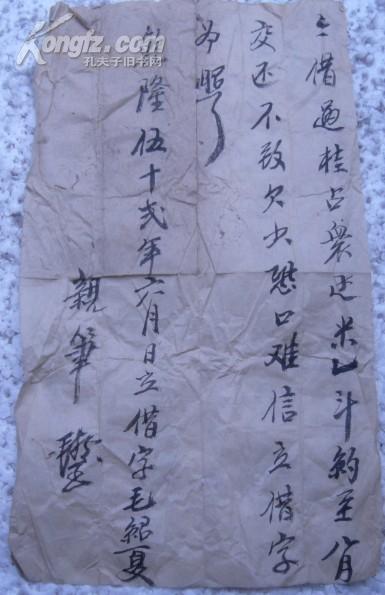 Kongfz.com
孔夫子旧书网
立借過桂占眾邊米斗約至八月
交还不致欠少恐口难信立借字
为照了
隆伍十弍年六月日立借字毛紹夏
親筆